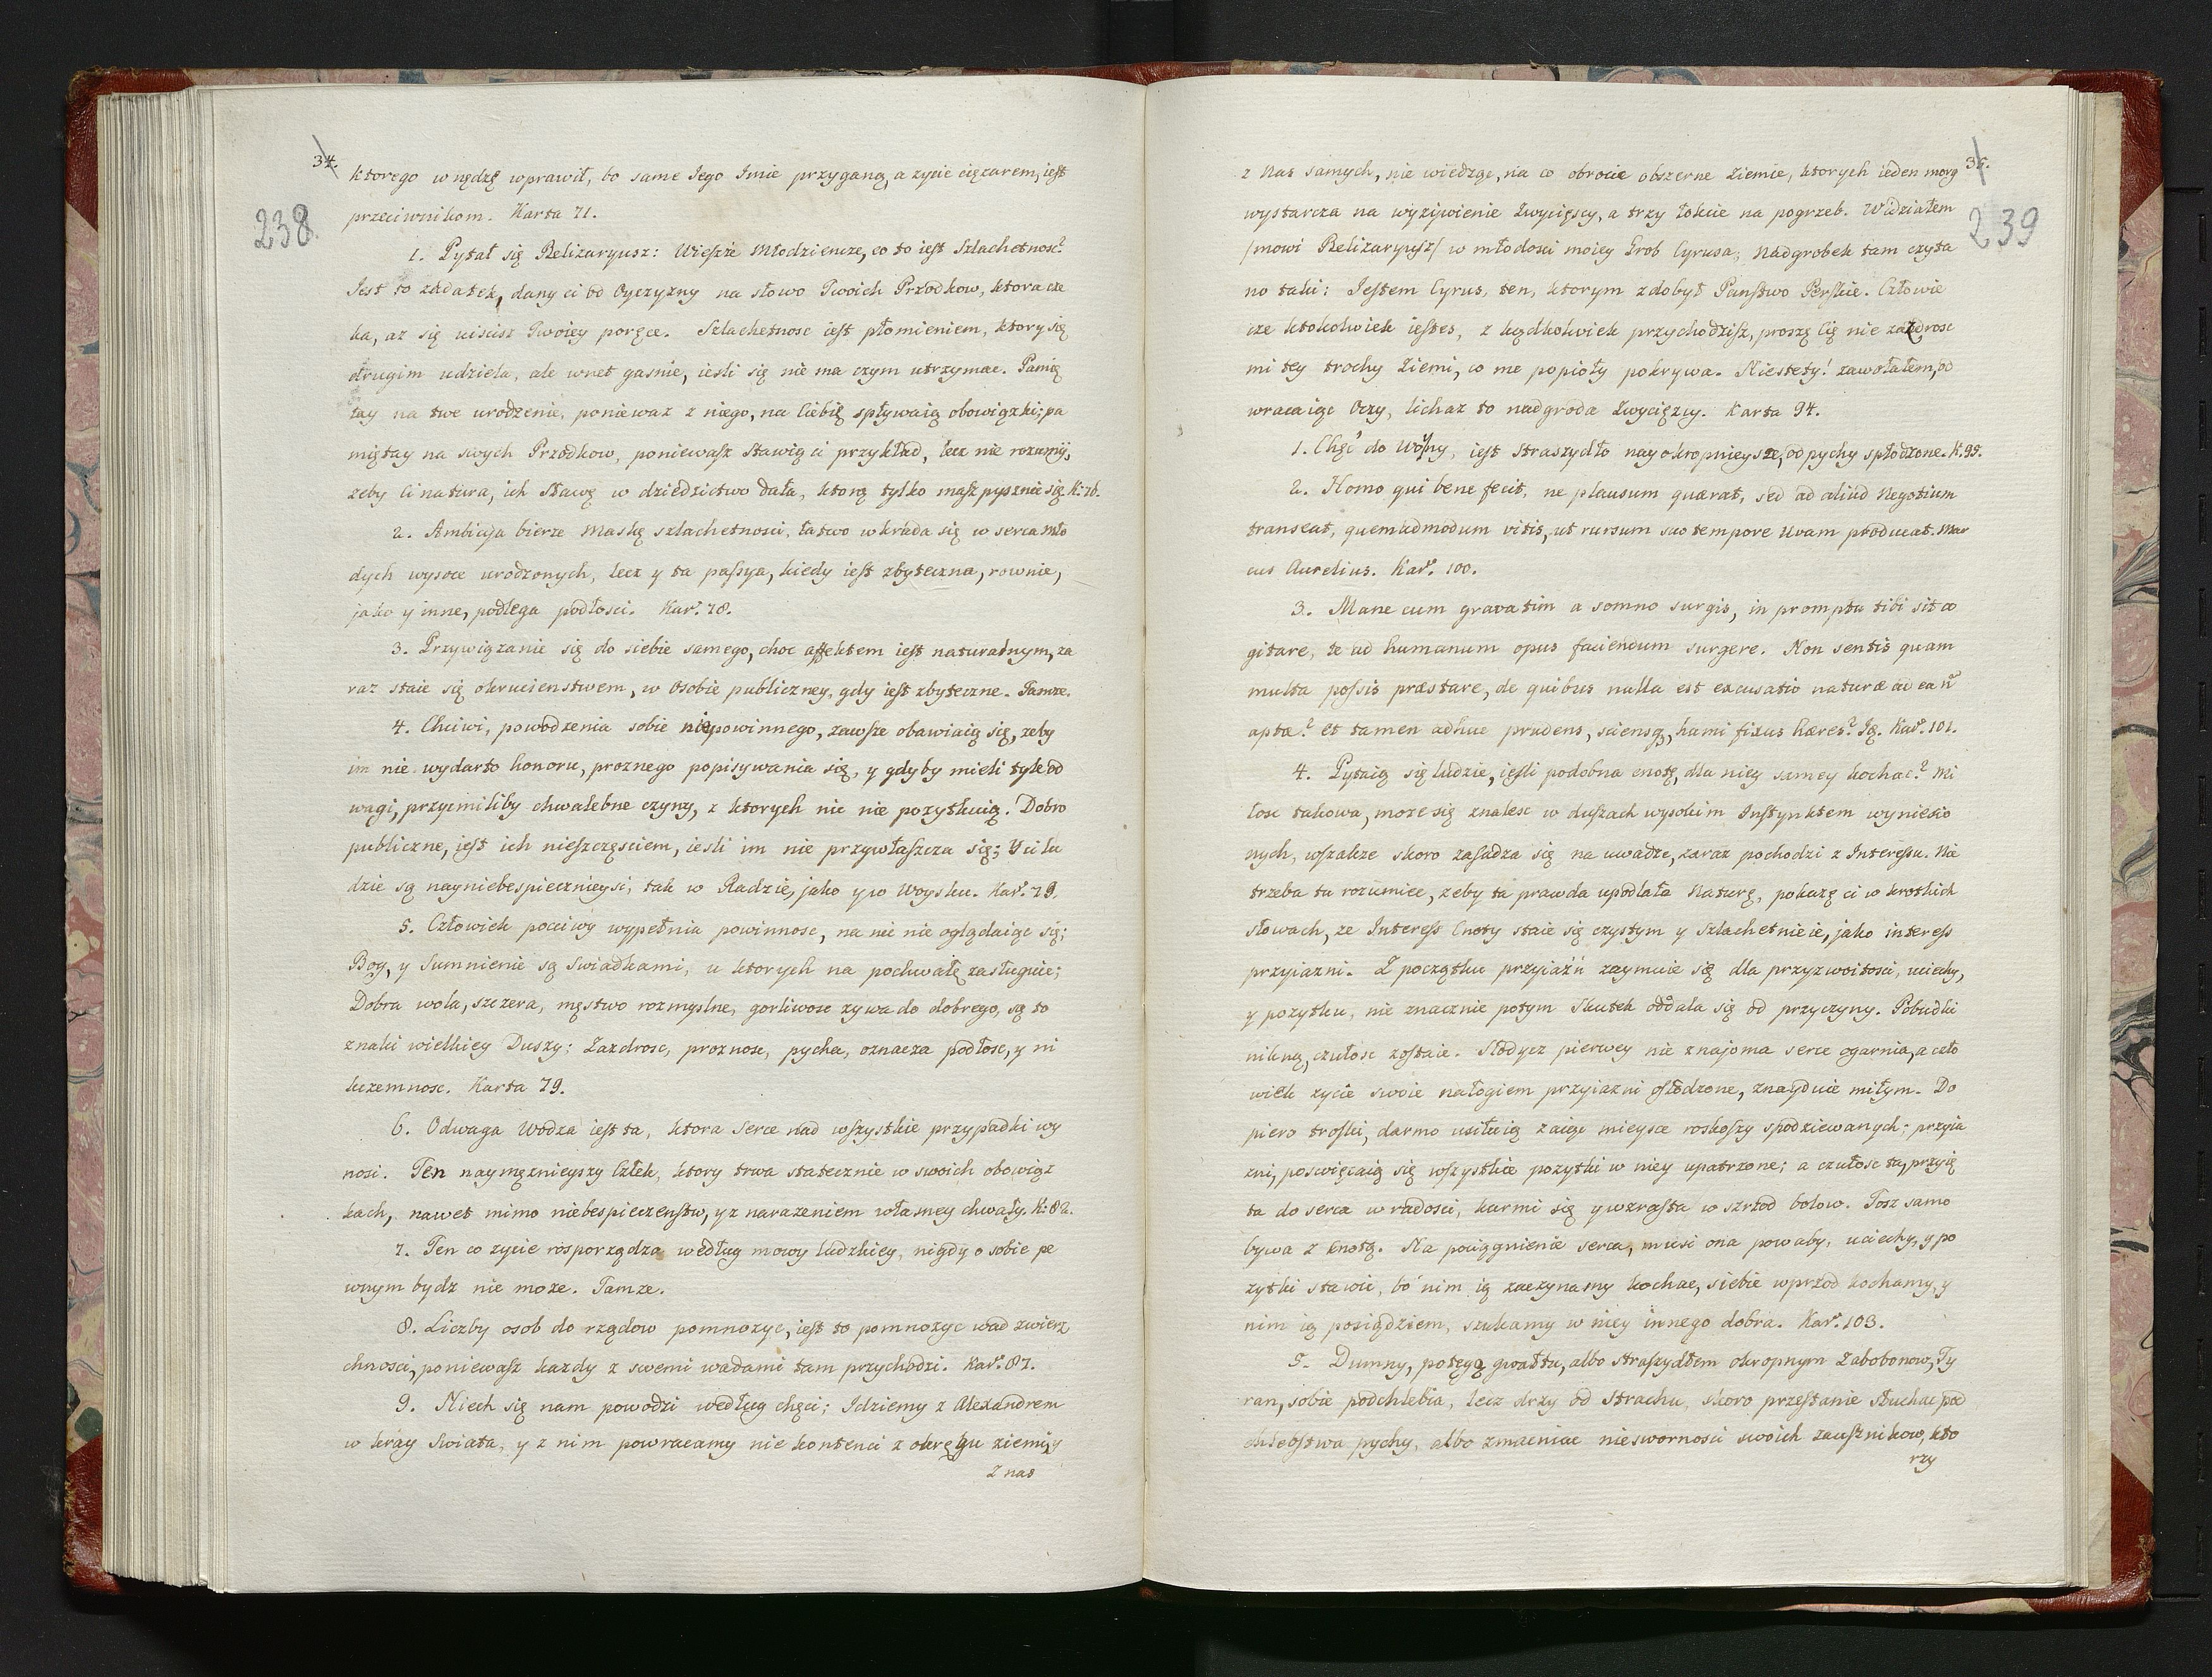 34.
238
ktorego w nędzę wprawił, bo same Jego Jmie przyganą, a zycie cięzarem, iest
przeciwnikom. Karta 71.
1. Pytał się Belizaryusz: Wieszże Młodziencze, co to iest Szlachetnosc?
Jest to zadatek, dany ci od Oyczyzny na słowo Twoich Przodkow, ktora cze
ka, az się uiscisz Twoiey poręce. Szlachetnosc iest płomieniem, ktory się
drugim udziela, ale wnet gasnie, iesli się nie ma czym utrzymac. Pamię
tay na twe urodzenie, poniewaz z niego, na Ciebię spływaią obowiązki; pa
miętay na swych Przodkow, poniewasz stawią ci przykład, lecz nie rozumiy,
zeby Ci natura, ich sławę w dziedzictwo dała, ktorą tylko masz pysznic się K. 76.
2. Ambicyja bierze Maskę szlachetnosci, łatwo wkrada się w serca Mło
dych wysoce urodzonych, lecz y ta passya, kiedy iest zbyteczna, rownie,
jako y inne, podlega podłosci. Kar. 78.
3. Przywiązanie się do siebie samego, choc affektem iest naturalnym, za
raz staie się okrucienstwem, w Osobie publiczney, gdy iest zbyteczne. Tamze.
4. Chciwi, powodzenia sobie niepowinnego, zawsze obawiaią się, zeby
im nie wydarto honoru, proznego popisywania się, y gdyby mieli tyle od
wagi, przycmiliby chwalebne czyny, z ktorych nic nie pozytkuią! Dobro
publiczne, iest ich nieszczęsciem, iesli im nie przywłaszcza się; Y ci lu
dzie są nayniebespiecznieysi, tak w Radzie, jako y w Woysku. Kar. 79.
5. Człowiek pociwy wypełnia powinnosc, na nic nie oglądaiąc się;
Bog, y Sumnienie są Swiadkami, u ktorych na pochwałę zasługuie;
Dobra wola, szczera, męstwo rozmyslne, gorliwosc zywa do dobrego, są to
znaki wielkiey Duszy; Zazdrosc, proznosc, pycha, oznacza podłosc, y ni
kczemnosc. Karta 79.
6. Odwaga Wodza iest ta, ktora Serce nad wszystkie przypadki wy
nosi. Ten naymęznieyszy Człek, ktory trwa statecznie w swoich obowiąz
kach, nawet mimo niebespieczenstw, y z narazeniem własney chwały. K: 82.
7. Ten co zycie rosporządza według mowy ludzkiey, nigdy o sobie pe
wnym bydz nie moze. Tamze.
8. Liczby osob do rządow pomnozyc, iest to pomnozyc wad zwierz
chnosci, poniewasz kazdy z swemi wadami tam przychodzi. Kar. 87.
9. Niech się nam powodzi według chęci; Jdziemy z Alexandrem
w kray Swiata, y z nim powracamy nie kontenci z okręgu ziemi, y
z nas
35.
239
z Nas samych, nie wiedząc, na co obrocic obszerne Ziemie, ktorych ieden morg
wystarcza na wyzywienie Zwycięscy, a trzy Łokcie na pogrzeb. Widziałem
/mowi Belizaryusz/ w młodosci moiey Grob Cyrusa, Nadgrobek tam czyta
no taki: Jestem Cyrus, ten, ktorym zdobył Panstwo Perskie. Człowie
cze ktokolwiek iestes, z kądkolwiek przychodzisz, proszę Cię nie zazdrosc
mi tey trochy Ziemi, co me popioły pokrywa. Niestety! zawołałem, od
wracaiąc Oczy, lichaz to nadgroda Zwycięzcy. Karta 94.
1. Chęc do Woyny, iest Straszydło nayokropnieysze, od pychy spłodzone. K. 95.
2. Homo qui bene fecit, ne plausum quærat, sed ad aliud Negotium
transeat, quemadmodum vitis, ut rursum suo tempore Uvam producat. Mar
cus Aurelius. Kar. 100.
3. Mane cum gravatim a somno surgis, in promptu tibi sit co
gitare, te ad humanum opus faciendum surgere. Non sentis quam
multa possis præstare, de quibus nulla est excusatio naturæ ad ea n
aptæ? et tamen adhuc prudens, sciensq, humi fixus hæres? Kar. 101.
4. Pytaią się ludzie, iesli podobna cnotę, dla niey samey kochac? Mi
łosc takowa, moze się znalesc w duszach wysokim Jnstynktem wyniesio
nych, wszakze skoro zasadza się na uwadze, zaraz pochodzi z Jnteressu. Nie
trzeba tu rozumiec, zeby ta prawda upodlała Naturę, pokazę ci w krotkich
słowach, ze Jnteress Cnoty staie się czystym y Szlachetnieie, jako interess
przyiazni. Z początku przyiaźń zaymuie się dla przyzwoitosci, uciechy,
y pozytku, nie znacznie potym Skutek oddala się od przyczyny. Pobudki
nikną, czułosc zostaie. Słodycz pierwey nie znajoma serce ogarnia, a czło
wiek zycie swoie nałogiem przyiazni osłodzone, znayduie miłym. Do
piero troski, darmo usiłuią zaiąc mieysce roskoszy spodziewanych; przyia
zni, poswięcaią się wszystkie pozytki w niey upatrzone; a czułosc ta, przyię
ta do serca w radosci, karmi się y wzrasta w szrzod bolow. Tosz samo
bywa z Cnotą. Na pociągnienie serca, musi ona powaby, uciechy, y po
zytki stawic, bo nim ią zaczynamy kochac, siebie wprzod kochamy, y
nim ią posiądziem, szukamy w niey innego dobra. Kar. 103.
5. Dumny, potęgą gwałtu, albo straszydłem okropnym Zabobonow, Ty
ran, sobie podchlebia, lecz drzy od Strachu, skoro przestanie słuchac pod
chlebstwa pychy, albo zmacniac niesfornosci swoich zausznikow, kto
rzy